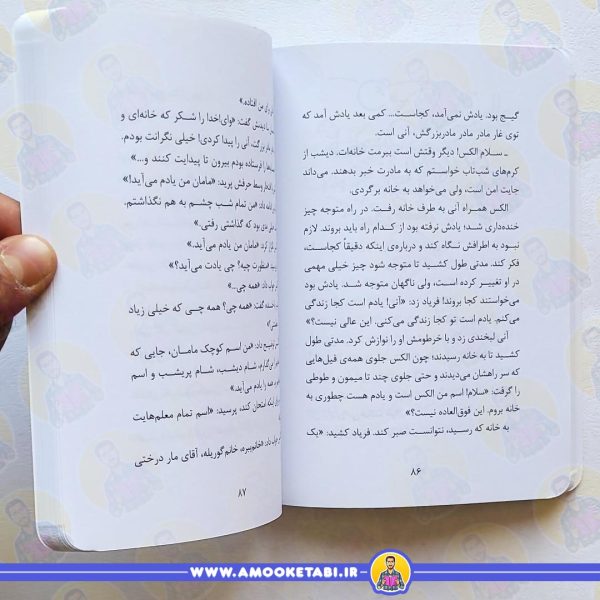 گیج بود. یادش نمی‌آمد، کجاست... کمی بعد یادش آمد که
توی غار مادر مادر مادربزرگش، آنی است.
ـ سلام الکس! دیگر وقتش است ببرمت خانه‌ات. دیشب از
کرم‌های شب‌تاب خواستم که به مادرت خبر بدهند. می‌داند
جایت امن است، ولی می‌خواهد به خانه برگردی.
الکس همراه آنی به طرف خانه رفت. در راه متوجه چیز
خنده‌داری شد؛ یادش نرفته بود از کدام راه باید بروند. لازم
نبود به اطرافش نگاه کند و درباره‌ی اینکه دقیقاً کجاست،
فکر کند. مدتی طول کشید تا متوجه شود چیز خیلی مهمی
در او تغییر کرده است، ولی ناگهان متوجه شد. یادش بود
می‌خواستند کجا بروند! فریاد زد: «آنی! یادم است کجا زندگی
می‌کنم. یادم است تو کجا زندگی می‌کنی. این عالی نیست؟»
آنی لبخندی زد و با خرطومش او را نوازش کرد. مدتی طول
کشید تا به خانه رسیدند؛ چون الکس جلوی همه‌ی فیل‌هایی
که سر راهشان می‌دیدند و حتی جلوی چند تا میمون و طوطی
را گرفت: «سلام! اسم من الکس است و یادم هست چطوری به
خانه بروم. این فوق‌العاده نیست؟»
به خانه که رسید، نتوانست صبر کند. فریاد کشید: «یک
۸۶
برای من افتاده.»
دیدنش گفت: «وای!خدا را شکر که خانه‌ای و
بزرگت، آنی را پیدا کردی! خیلی نگرانت بودم.
را فرستاده بودم بیرون تا پیدایت کنند و...»
وسط حرفش پرید: «مامان من یادم می‌آید!»
داد: «من تمام شب چشم به هم نگذاشتم.
بدی بود که گذاشتی رفتی.»
کرد: «مامان من یادم می‌آید.»
«منظورت چیه؟ چی یادت می‌آید؟»
داد: «همه چی...»
گفت: «همه چی؟ همه چی که خیلی زیاد
توضیح داد: «من اسم کوچک مامان، جایی که
شام دیشب، شام پریشب و اسم
همه را یادم می‌آید.»
اینکه امتحان کند، پرسید: «اسم تمام معلم‌هایت
داد: «خانم‌ببره، خانم‌گوریله، آقای مار درختی
۸۷
WWW.AMOOKETABI.IR